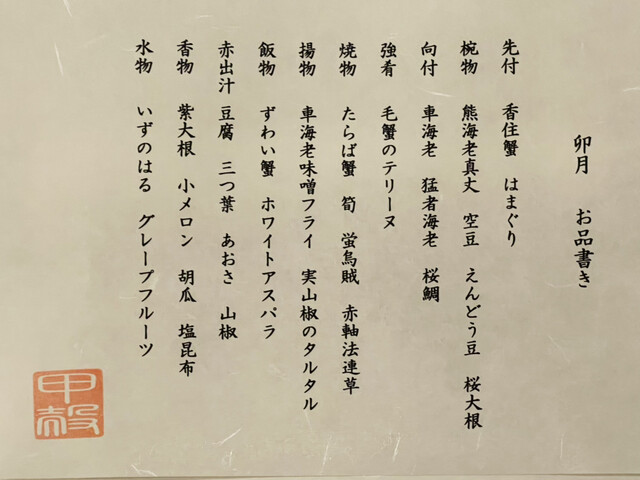 卯月 お品書き
先付 香住蟹 はまぐり
椀物 熊海老真丈 空豆 えんどう豆 桜大根
向付 車海老 猛者海老 桜鯛
強肴 毛蟹のテリーヌ
焼物 たらば蟹 筍 蛍烏賊 赤軸法連草
揚物 車海老味噌フライ 実山椒のタルタル
飯物 ずわい蟹 ホワイトアスパラ
赤出汁 豆腐 三つ葉 あおさ 山椒
香物 紫大根 小メロン 胡瓜 塩昆布
水物 いずのはる グレープフルーツ
甲殻